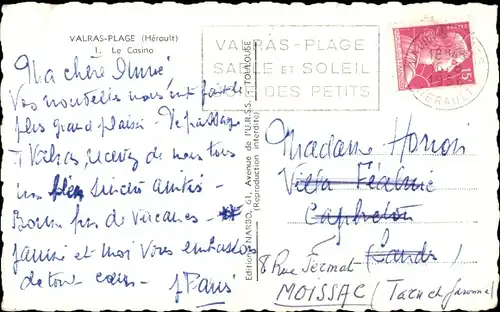 VALRAS-PLAGE (Hérault)
1. Le Casino
VALRAS-PLAGE
SABLE ET SOLEIL
DES PETITS
15
HERAULT
Ma chère
Vos nouvelles nous ont fait le
plus grand plaisir. De passage
à Valras, recevez de nous tous
nos plus sincères amitiés.
Bonne fin de vacances.
Janine et moi vous embrassons
de tout cœur.
Editions NARBO, 61, Avenue de l'U.R.S.S. - TOULOUSE
(Reproduction interdite)
Madame
Villa Féline
Capbreton
(Landes)
8 Rue Fermat
MOISSAC (Tarn et Garonne)